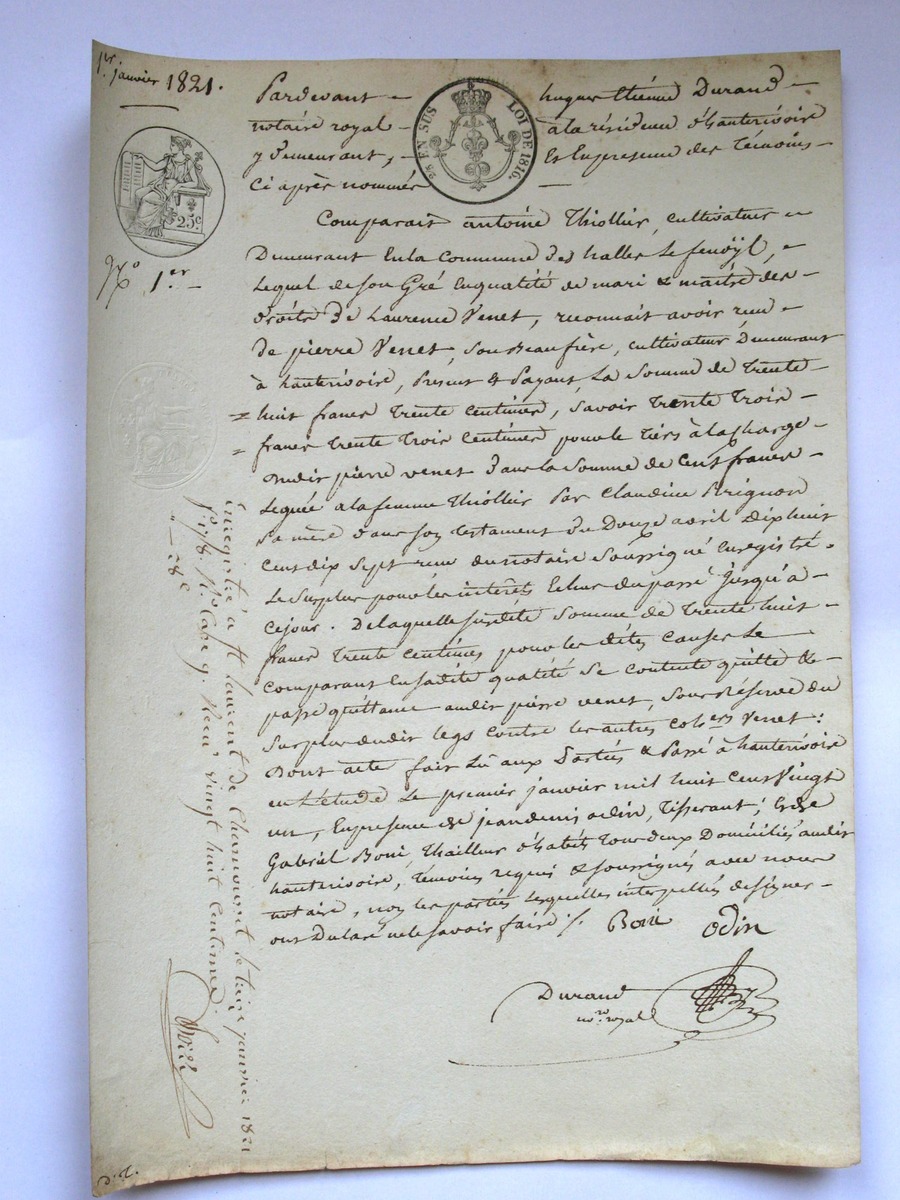 1er janvier 1821.
Pardevant hugues Etienne Durand
notaire royal à la résidence d'hauterivoire
y demeurant, Et En presence des Témoins
Ci après nommés
EN SUS LOI DE 1816.
25c
No 1er
Comparait antoine Thiollier, cultivateur
Demeurant En la Commune des halles Le fenöyl,
Lequel de son Gré En qualité de mari & maitre des
droits de Laurence Venet, reconnait avoir reçu
de pierre Venet, son Beau frère, cultivateur Demeurant
à hauterivoire, Present & Payant, La Somme de Trente
huit francs trente Centimes, Savoir Trente Trois
francs Trente Trois Centimes pour le tiers à la charge
dudit pierre venet dans la Somme de Cent francs
Leguée a la femme Thiollier Par Claudine Brignon
Sa mère dans son testament du Douze avril dix huit
Cent dix Sept reçu du notaire Soussigné Enregistré.
Le Surplus pour les interêts Echus du passé Jusqu'à
Ce jour. De laquelle susdite Somme de Trente huit
francs Trente Centimes pour les dites Causes Le
Comparant En sadite qualité Se Contente quitte &
passe quittance audit pierre venet, Sous Réserve du
Surplus dudit legs contre les autres cohers Venet:
Dont acte fait Lû aux Parties & Passé à hauterivoire
en L'étude Le premier janvier mil huit Cent Vingt
un, En presence de jean denis odin, Tisserant; & de
Gabriel Boni, Thailleur d'habits Tous deux Domiciliés audit
hauterivoire, Témoins requis & soussignés avec nous
notaire, non les parties Lesquelles interpellés de signer
ont Declaré ne le savoir faire ./.
Boni odin
Durand
nore royal
Enregistré à St laurent de Chamousset le treize janvier 1821
fo 178. Ro Case 9. Recu vingt huit centimes
28c